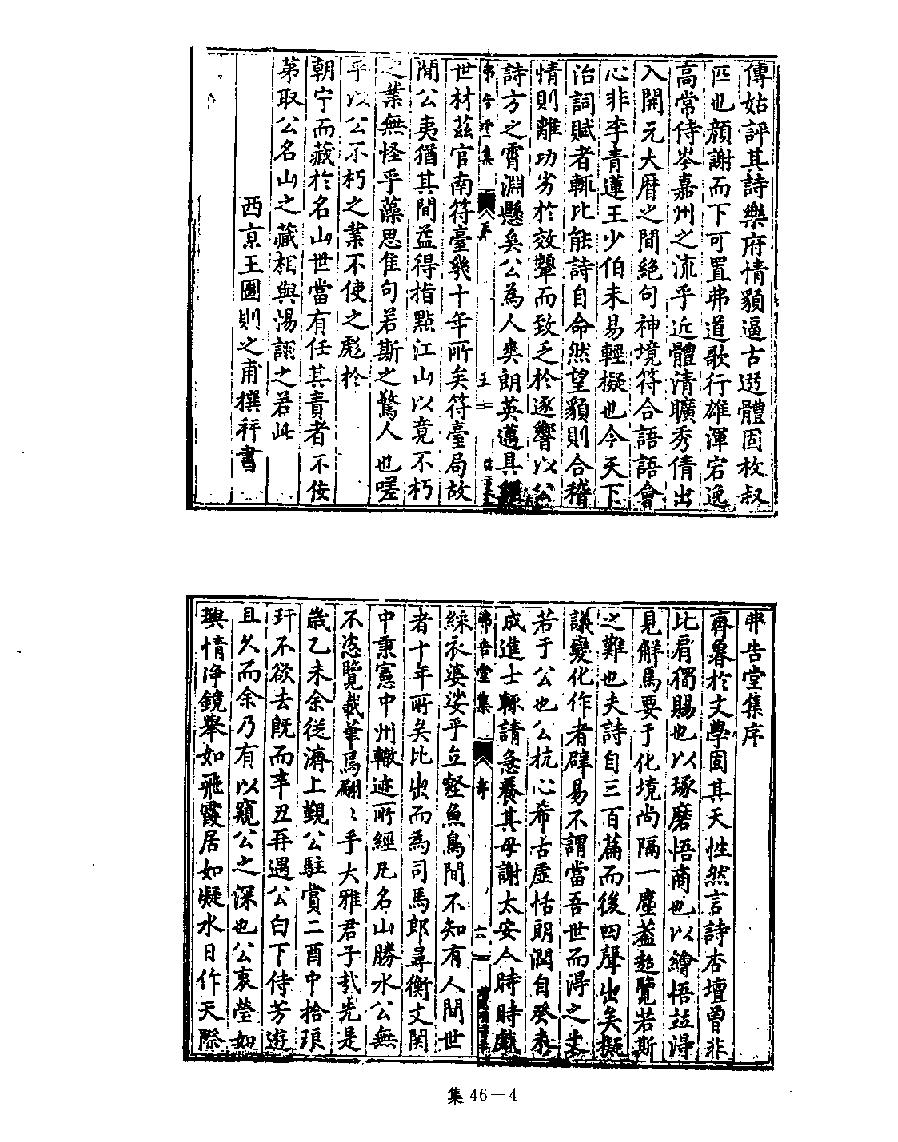 傳姑評其詩樂府情顥逼古選體固枚叔
匹也顏謝而下可置弗道歌行雄渾宕逸
高常侍岑嘉州之流乎近體清曠秀倩出
入開元大曆之間絕句神境符合語語會
心非李青蓮王少伯未易輕擬也今天下
治詞賦者輒比能詩自命然望顥則合稽
情則離功劣於效顰而致乏於逐響以公
詩方之霄淵懸矣公為人爽朗英邁具
弗告堂集 五
世材茲官南符臺幾十年所矣符臺局故
閒公夷猶其間益得指點江山以竟不朽
之業無怪乎藻思隹句若斯之驚人也嗟
乎以公不朽之業不使之彪於
朝宁而藏於名山世當有任其責者不佞
第取公名山之藏相與揚謌之若此
西京王圖則之甫撰并書
弗告堂集序
商㬥於文學固其天性然言詩杏壇曾非
比肩獨賜也以琢磨悟商也以繪悟竝淂
見解焉要于化境尚隔一塵葢超覽若斯
之難也夫詩自三百篇而後四聲出矣擬
議變化作者辟易不謂當吾世而淂之
若于公也公抗心希古虛恬朗潤自癸未
弗告堂集 序 六
成進士輒請急養其母謝太安人時時戲
綵衣婆娑乎丘壑魚鳥間不知有人間世
者十年所矣比出而為司馬郎尋衡文関
中秉憲中州轍迹所經凡名山勝水公無
不恣覽載筆焉翩〻乎大雅君子哉先是
歲乙未余從濟上覯公駐賞二酉中拾琅
玕不欲去既而辛丑再遇公白下侍芳遊
且久而余乃有以窺公之深也公衷瑩如
輿情淨鏡舉如飛霞居如凝水日作天際
集 46—4